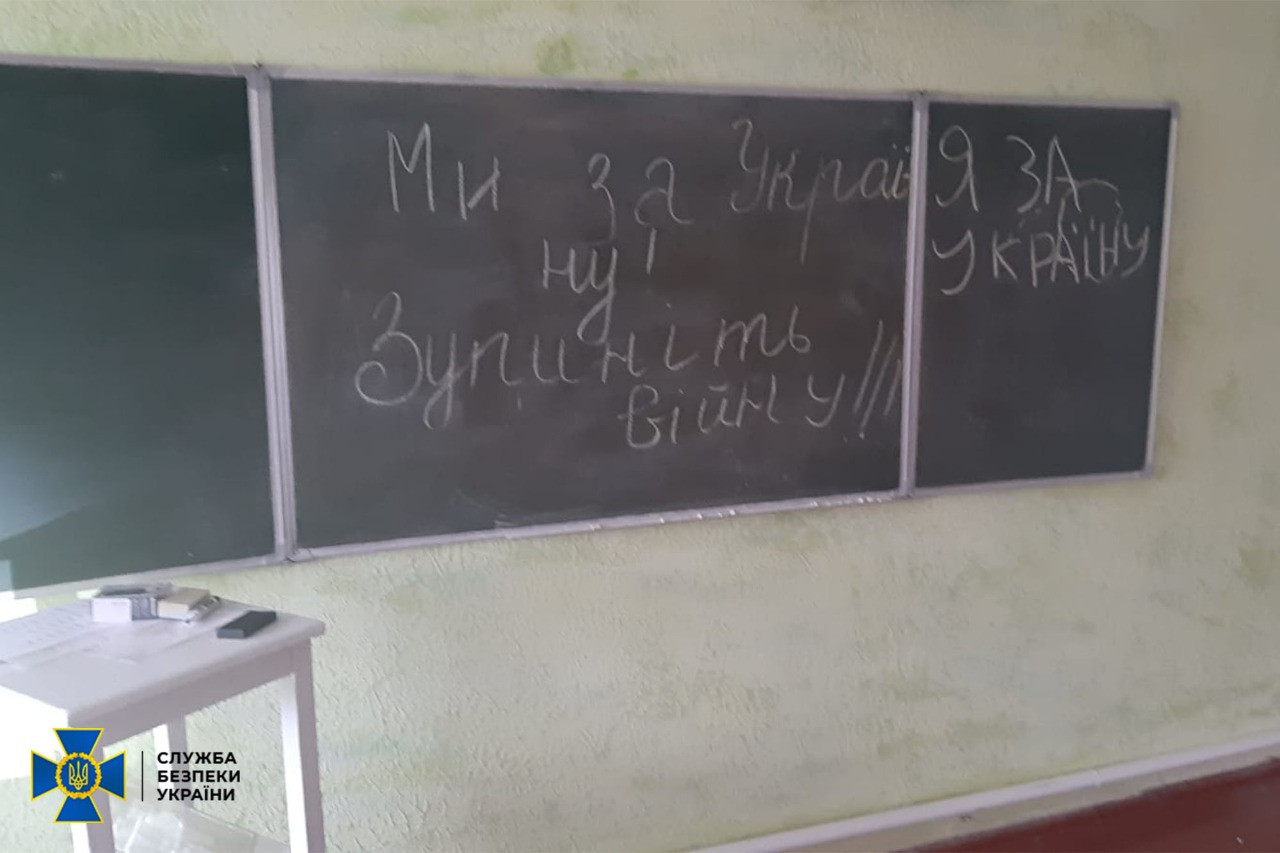 Ми за Украї
ну!
Зупиніть
війну!!!
Я ЗА
УКРАЇНУ
СЛУЖБА
БЕЗПЕКИ
УКРАЇНИ